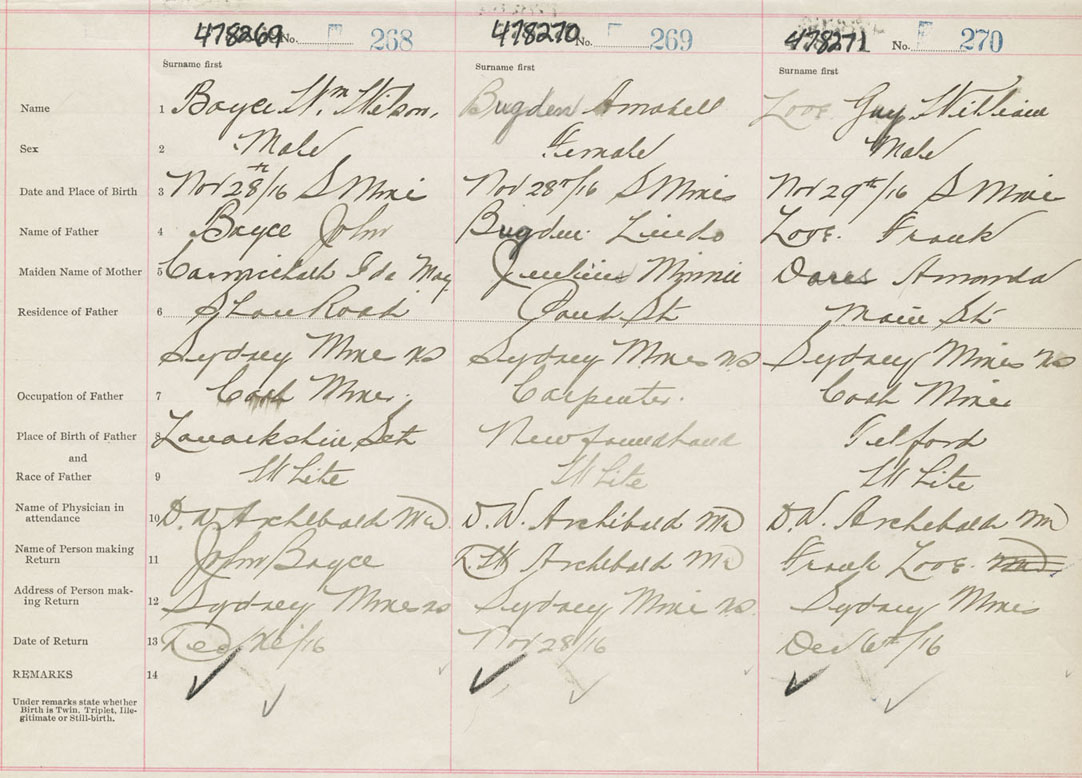 478269 No. 268 478270 No. 269 478271 No. 270
Surname first Surname first Surname first
Name 1 Boyce Wm. Wilson, Bugden Annabell Love Guy William
Sex 2 Male Female Male
Date and Place of Birth 3 Nov 28th/16 S Mines Nov 28th/16 S Mines Nov 29th/16 S Mines
Name of Father 4 Boyce John Bugden Love. Frank
Maiden Name of Mother 5 Carmichael Ida May Jenkins Minnie Amanda
Residence of Father 6 Road Pond St Main St
Sydney Mines NS Sydney Mines NS Sydney Mines NS
Occupation of Father 7 Coal Miner. Carpenter. Coal Miner
Place of Birth of Father 8 Lanarkshire Sct Newfoundland Telford
and
Race of Father 9 White White White
Name of Physician in
attendance 10 D. W Archibald MD. D. W. Archibald MD D. W. Archibald MD
Name of Person making
Return 11 John Boyce D W Archibald MD Frank Love.
Address of Person mak-
ing Return 12 Sydney Mines NS Sydney Mines NS. Sydney Mines
Date of Return 13 Dec /16 Nov 28/16 Dec 6th/16
REMARKS 14
Under remarks state whether
Birth is Twin, Triplet, Ille-
gitimate or Still-birth.